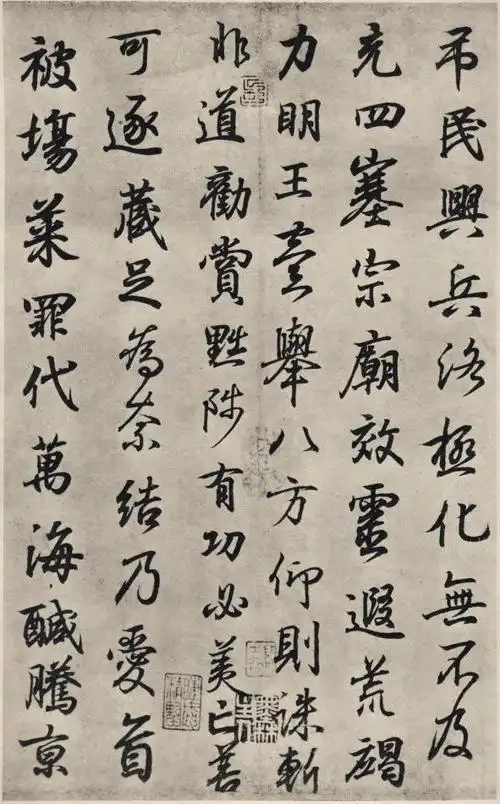 吊民興兵洛極化無不及
充四塞宗廟效靈遐荒竭
力明王舉八方仰則誅斬
非道勸賞黜陟有功必美亡
可逐藏足為奈結乃愛首
被場菜罪代萬海醎騰京